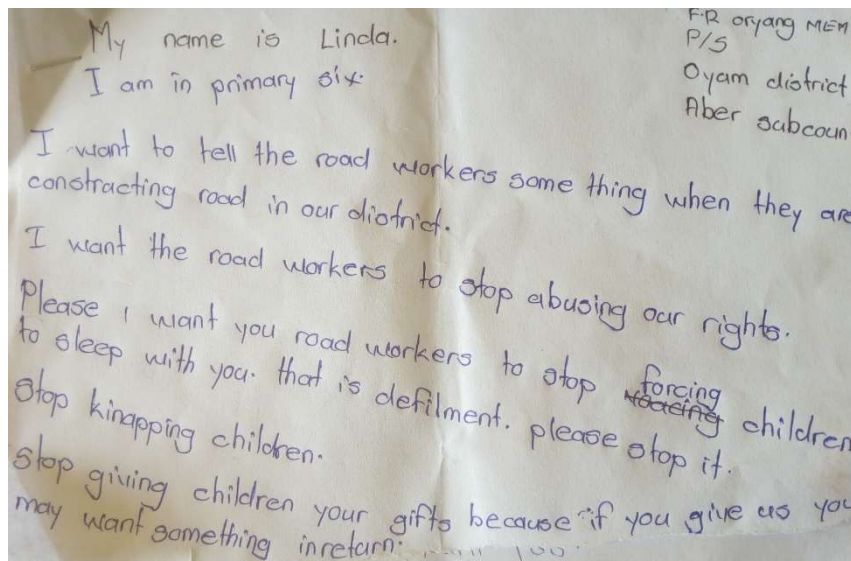 F.R oryang MEM
P/S
Oyam district
Aber subcoun
My name is Linda.
I am in primary six.
I want to tell the road workers some thing when they are
constracting road in our district.
I want the road workers to stop abusing our rights.
Please I want you road workers to stop forcing children
to sleep with you. that is defilment. please stop it.
Stop kinapping children.
Stop giving children your gifts because if you give us you
may want something inretarn.